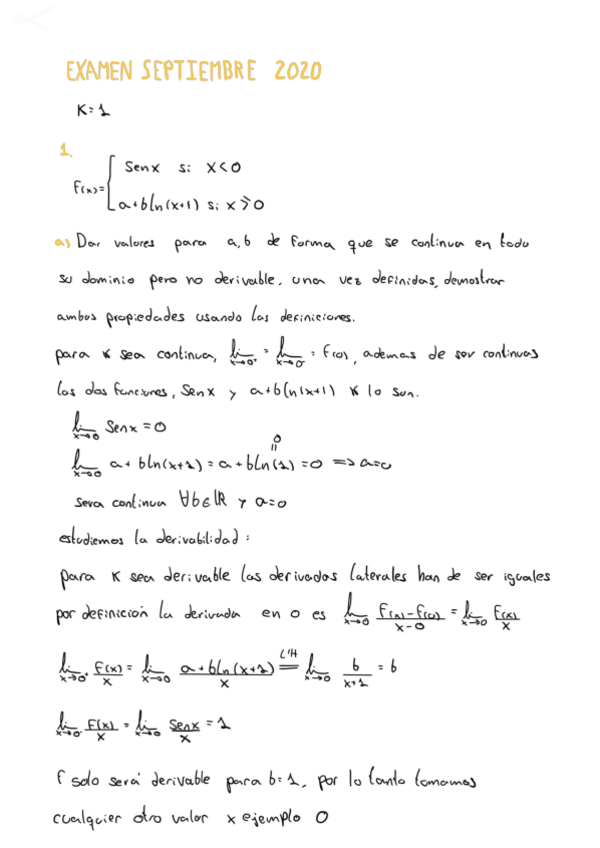 EXAMEN SEPTIEMBRE 2020
K=1
1.
F(x)= { Senx si x<0
a+bln(x+1) si x≥0
a) Dar valores para a,b de forma que se continua en todo
su dominio pero no derivable. una vez definidas, demostrar
ambas propiedades usando las definiciones.
para K sea continua, lim x→0⁺ = lim x→0⁻ = F(0), ademas de ser continuas
las dos funciones, Senx y a+b(n(x+1) K lo son.
lim x→0 Senx = 0
lim x→0 a+bln(x+1) = a+bln(1) = 0 => a=0
0
sera continua ∀b∈ℝ y a=0
estudiemos la derivabilidad:
para K sea derivable las derivadas laterales han de ser iguales
por definición la derivada en 0 es lim x→0 (F(x)-F(0))/(x-0) = lim x→0 F(x)/x
lim x→0⁺ F(x)/x = lim x→0 (a+bln(x+1))/x =(L'H) lim x→0 b/(x+1) = b
lim x→0⁻ F(x)/x = lim x→0 Senx/x = 1
F solo será derivable para b=1, por lo tanto tomamos
cualquier otro valor x ejemplo 0